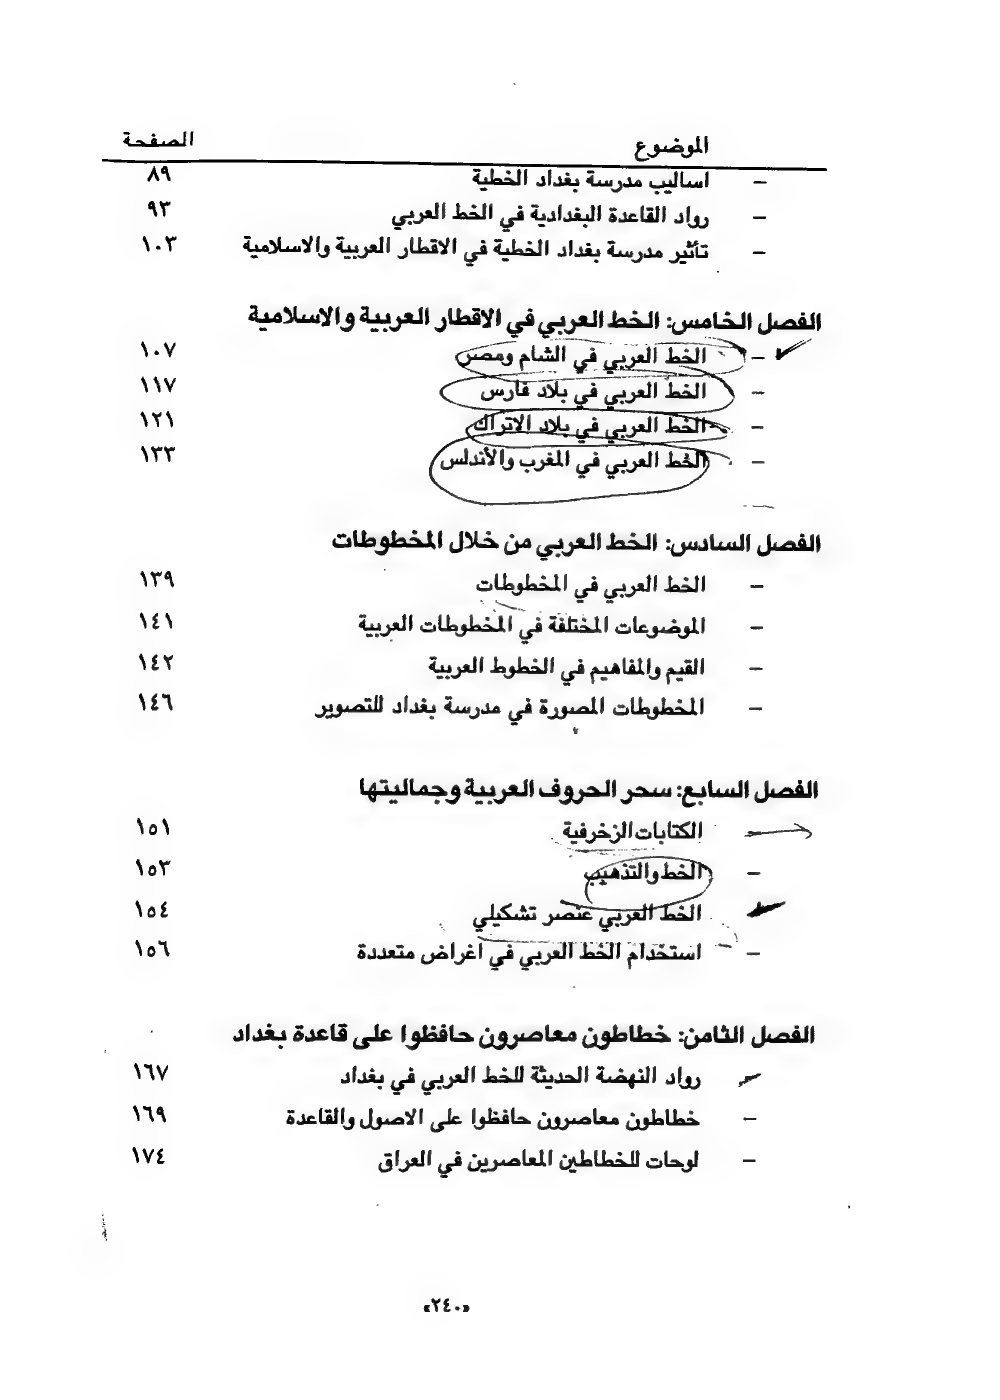 الموضوع الصفحة
– اساليب مدرسة بغداد الخطية ٨٩
– رواد القاعدة البغدادية في الخط العربي ٩٣
– تأثير مدرسة بغداد الخطية في الاقطار العربية والاسلامية ١٠٣
الفصل الخامس: الخط العربي في الاقطار العربية والاسلامية
– الخط العربي في الشام ومصر ١٠٧
– الخط العربي في بلاد فارس ١١٧
– الخط العربي في بلاد الاتراك ١٢١
– الخط العربي في المغرب والأندلس ١٣٣
الفصل السادس: الخط العربي من خلال المخطوطات
– الخط العربي في المخطوطات ١٣٩
– الموضوعات المختلفة في المخطوطات العربية ١٤١
– القيم والمفاهيم في الخطوط العربية ١٤٢
– المخطوطات المصورة في مدرسة بغداد للتصوير ١٤٦
الفصل السابع: سحر الحروف العربية وجماليتها
– الكتابات الزخرفية ١٥١
– الخط والتذهيب ١٥٣
– الخط العربي عنصر تشكيلي ١٥٤
– استخدام الخط العربي في اغراض متعددة ١٥٦
الفصل الثامن: خطاطون معاصرون حافظوا على قاعدة بغداد
– رواد النهضة الحديثة للخط العربي في بغداد ١٦٧
– خطاطون معاصرون حافظوا على الاصول والقاعدة ١٦٩
– لوحات للخطاطين المعاصرين في العراق ١٧٤
«٢٤٠»